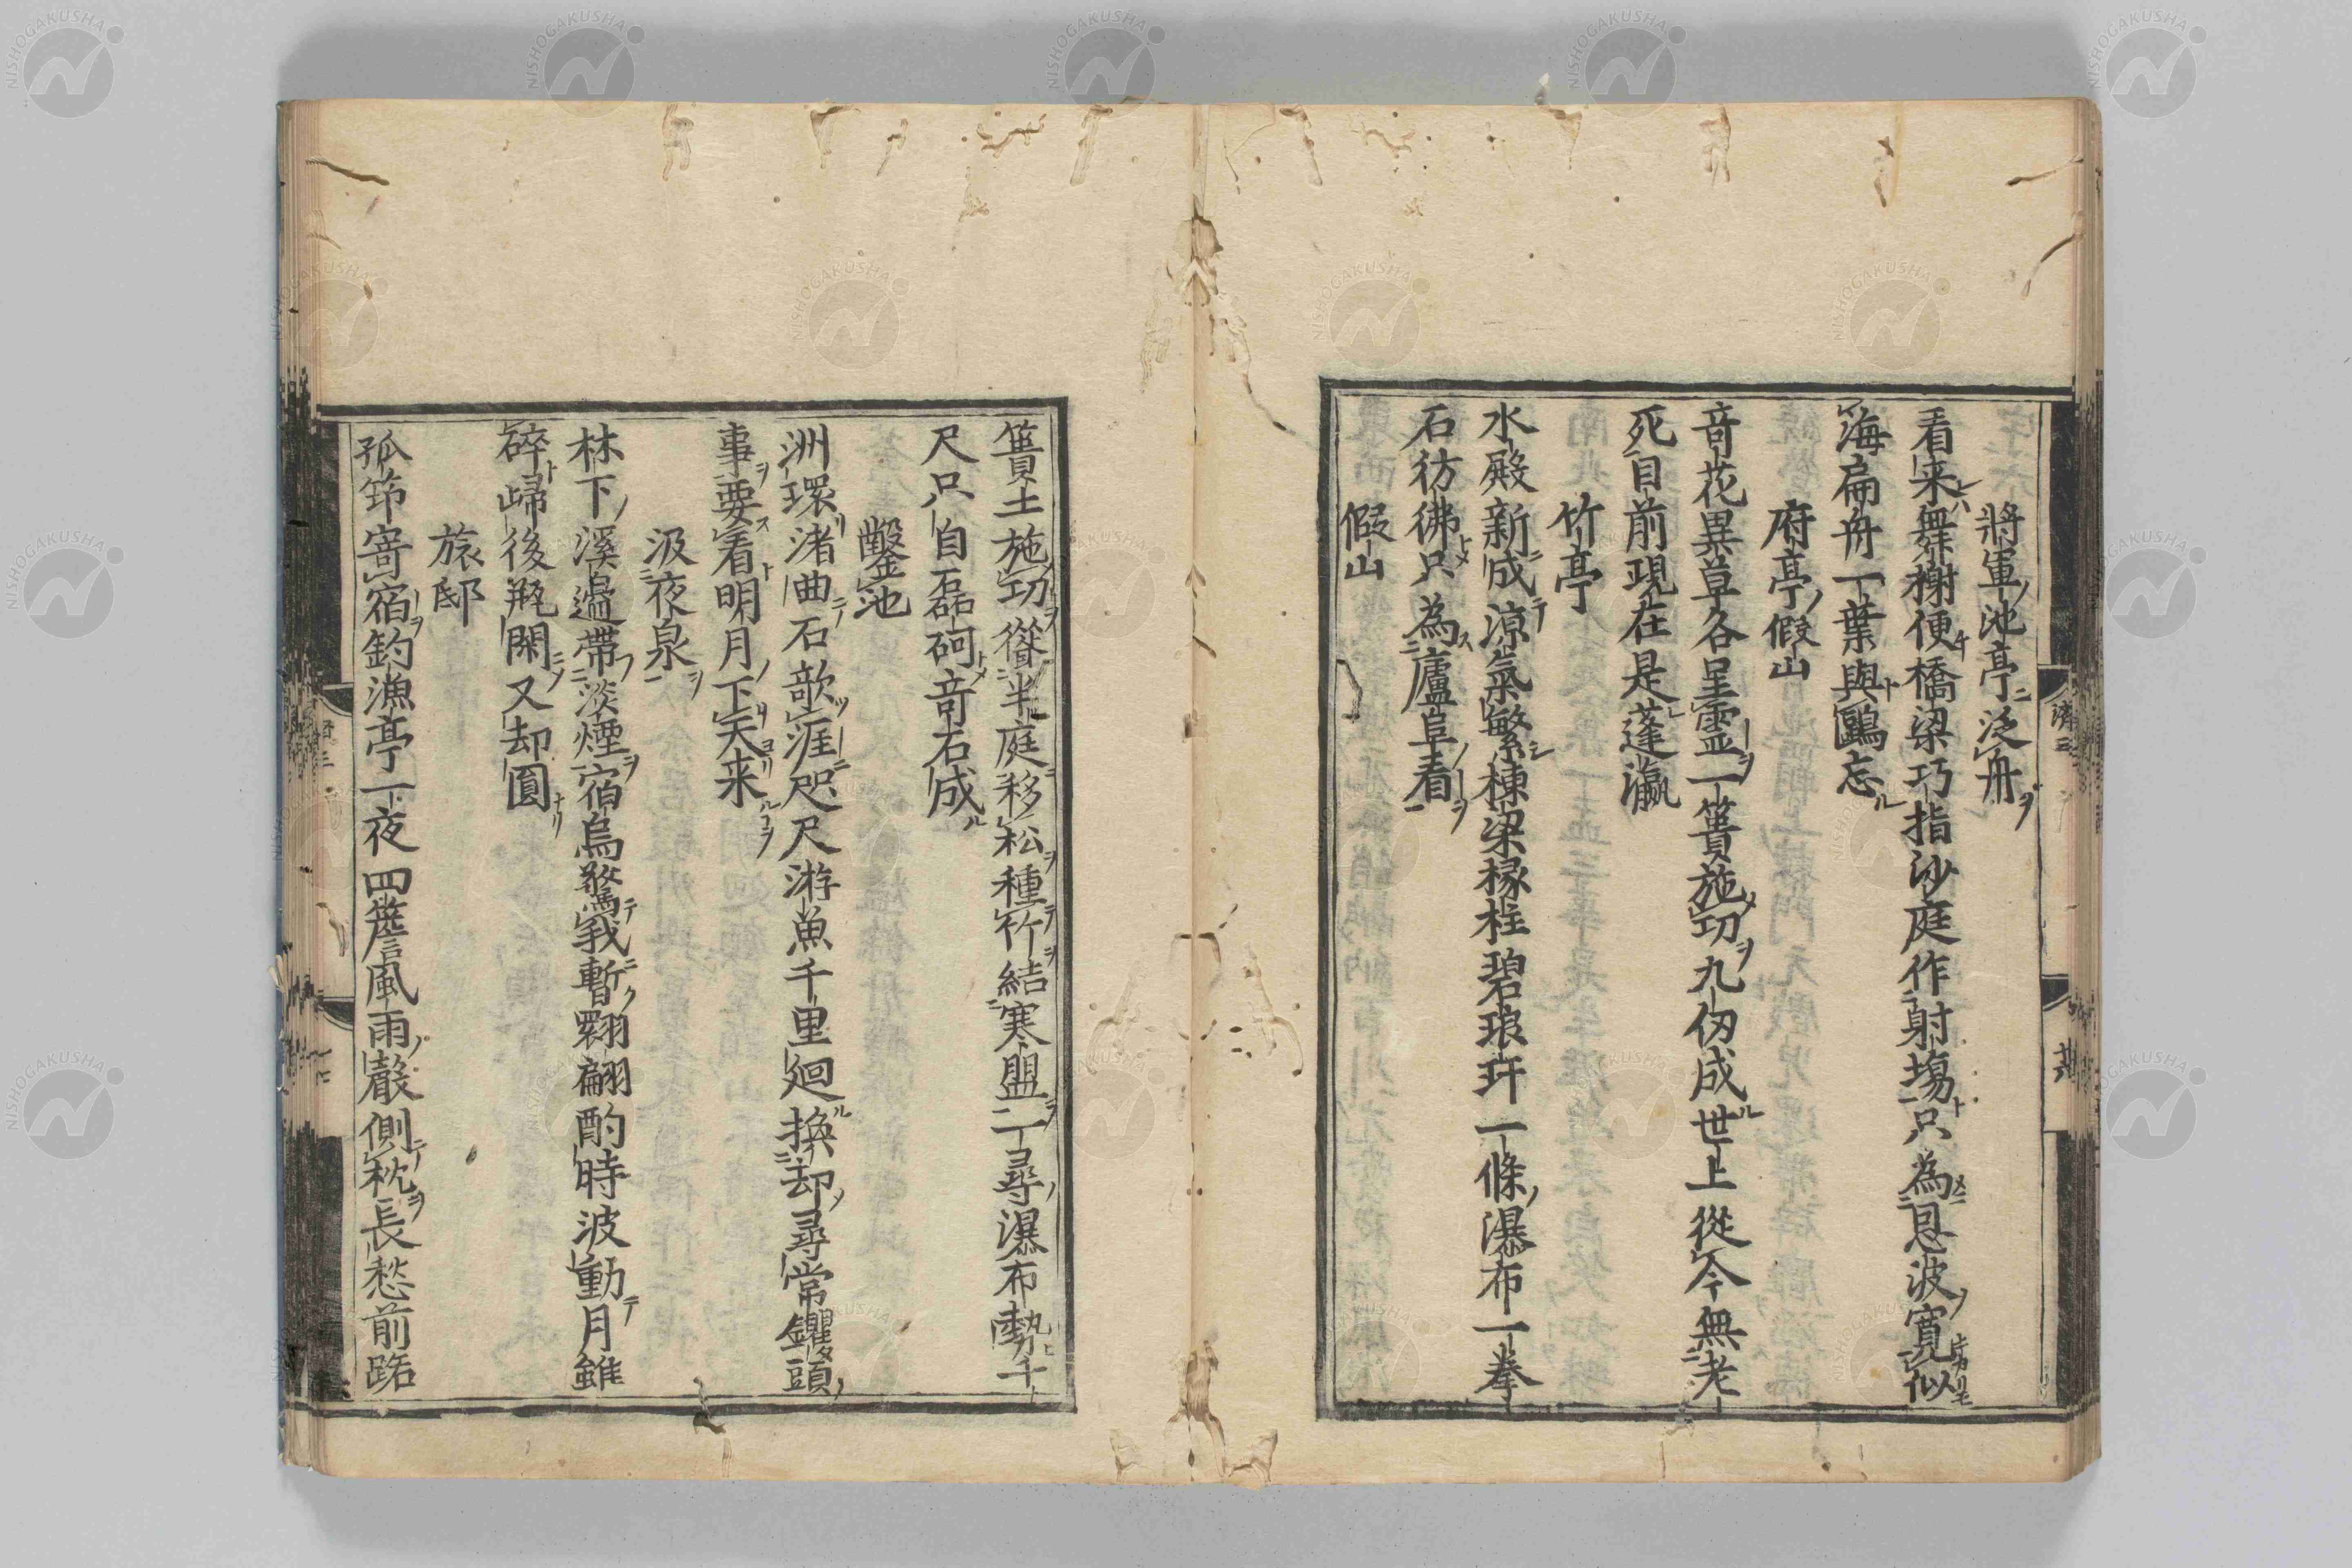 將軍池亭泛舟
看来舞榭便橋梁巧指沙庭作射塲只為恩波寛似
海扁舟一葉與鷗忘
府亭假山
竒花異草各呈霊一簣施功九仭成世上從今無老
死目前現在是蓬瀛
竹亭
水殿新成凉氣繁棟梁椽柱碧琅玕一條瀑布一拳
石彷彿只為廬阜看
假山
簣土施功從半庭移松種竹結寒盟一尋瀑布勢千
尺只自磊砢竒石成
鑿池
洲環渚曲石欹涯咫尺游魚千里廻換却尋常钁頭
事要看明月下天来
汲夜泉
林下溪邊帶淡煙宿鳥驚我暫翾翩酌時波動月雖
碎歸後瓶閑又却圓
旅邸
孤笻寄宿釣漁亭一夜四簷風雨聲側枕長愁前路